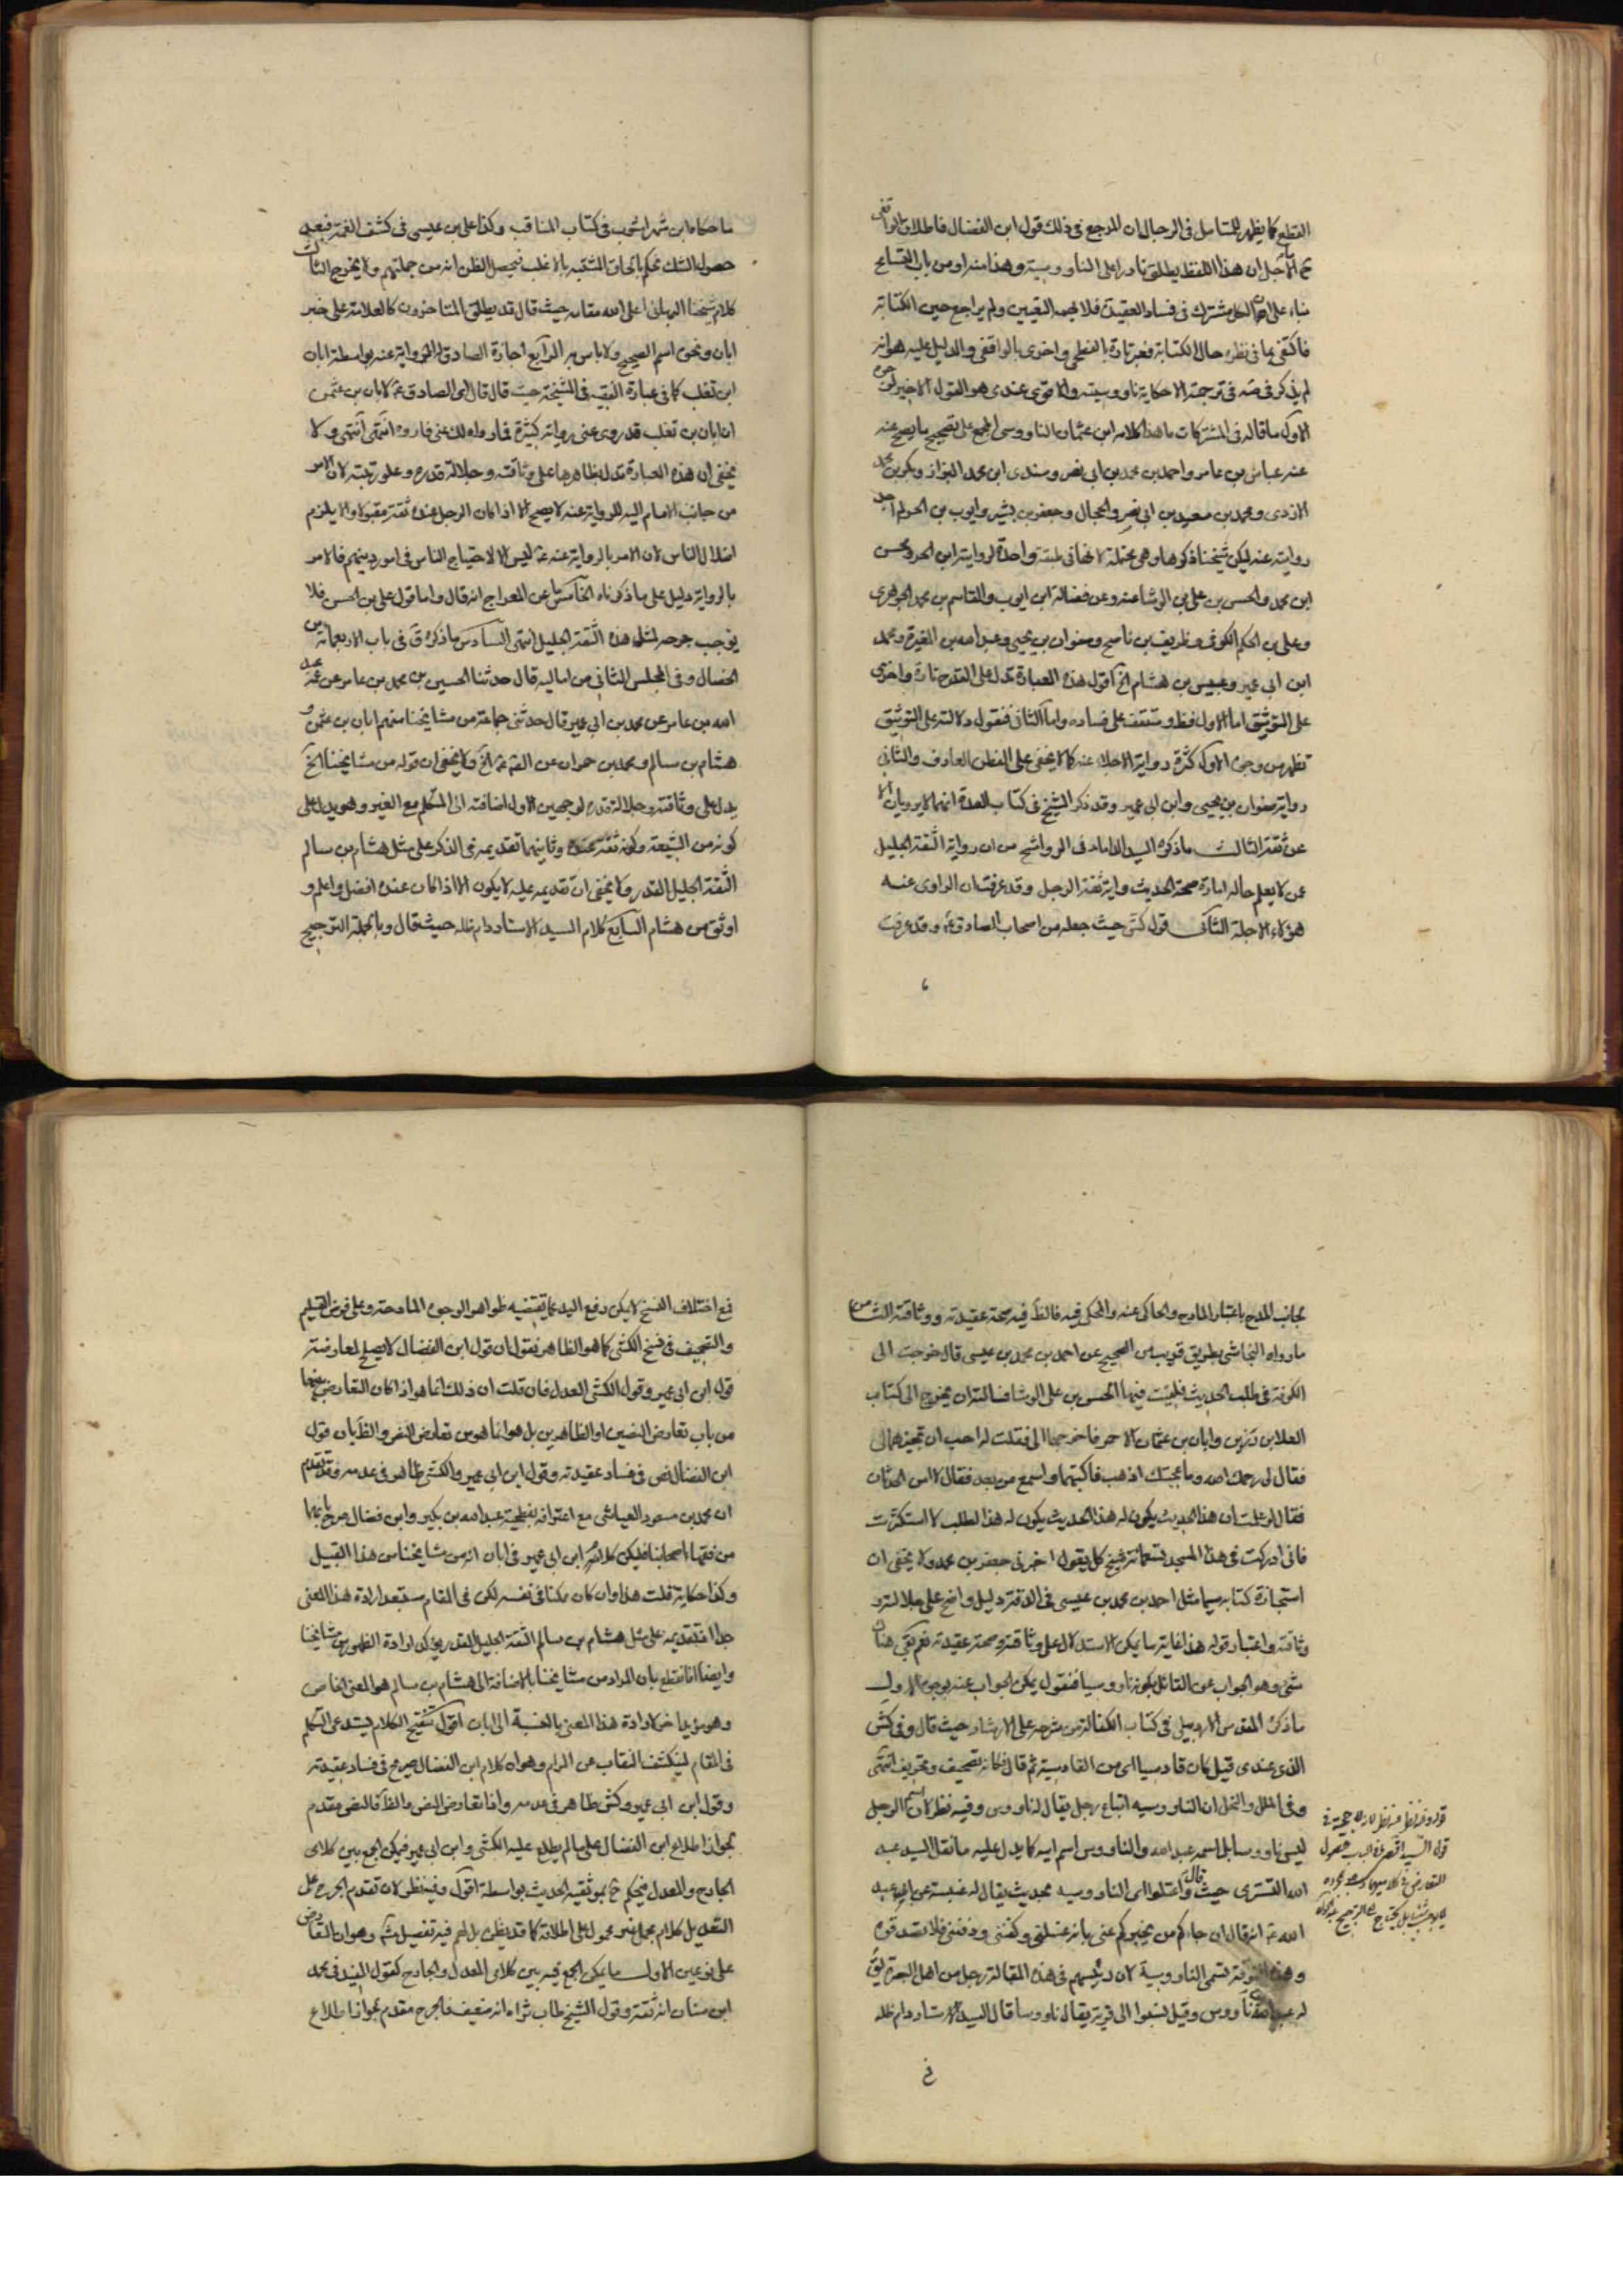 القطع كما يظهر للمتامل فى الرجال ان المرجع فى ذلك قول ابن الفضال فاطلاق الواقفى
الاجل ان هذا اللفظ يطلق نادرا على الناووسية وهذا منه او من باب التسامح
بناء على ان الكل مشترك فى فساد العقيدة فلا يهمه التعيين ولم يراجع حين الكتابة
فاكتفى بما فى نظره حال الكتابة فعبر تارة بالفطحى واخرى بالواقفى والدليل عليه هو انه
لم يذكر فى ترجمته الا حكاية ناووسيته والاقوى عندى هو القول الاخير
الاول ما قاله فى المشتركات ما هذا كلامه ابن عثمان الناووسى المجمع على تصحيح ما يصح عنه
عنه عباس بن عامر واحمد بن محمد بن ابى نصر وسندى ابن محمد البزاز وبكر بن محمد
الازدى ومحمد بن سعيد بن ابى نصر والحجال وجعفر بن بشير وايوب بن الحر
روايته عنه ليكن شيخنا ذكرها وهى محتملة لانها فى واحدة لرواية ابن الحر ومحسن
ابن محمد والحسن بن على بن الوشا عنه وعن فضالة ابن ايوب والقاسم بن محمد الجوهرى
وعلى بن الحكم الكوفى وظريف بن ناصح وصفوان بن يحيى وعبد الله بن المغيرة ومحمد
ابن ابى عمير وعبيس بن هشام الخ اقول هذه العبارة تدل على القدح تارة واخرى
على التوثيق اما الاول فظ وستقف على فساده واما الثانى فنقول دلالته على التوثيق
تظهر من وجوه الاول كثرة رواية الاجلاء عنه كما لا يخفى على الفطن العارف والثانى
رواية صفوان بن يحيى وابن ابى عمير وقد ذكر الشيخ فى كتاب العدة انهما لا يرويان الا
عن ثقة الثالث ما ذكره السيد الداماد فى الرواشح من ان رواية الثقة الجليل
عمن لا يعلم حاله امارة صحة الحديث وآية ثقة الرجل وقد عرفت ان الراوى عنه
هؤلاء الاجلة الثانى قول كش حيث جعله من اصحاب الصادق ع وقد عرفت
ما حكاه ابن شهر اشوب فى كتاب المناقب وكذا على بن عيسى فى كشف الغمة فبعد
حصول الشك نحكم بالحاق المشتبه بالاغلب فيحصل الظن انه من جملتهم ولا يخرج الثالث
كلام شيخنا البهائى اعلى الله مقامه حيث قال قد يطلق المتاخرون كالعلامة على خبر
ابان ونحوه اسم الصحيح ولا باس به الرابع اجازة الصادق ع الرواية عنه بواسطة ابان
ابن تغلب كما فى عبارة الفقيه فى المشيخة حيث قال قال ابى الصادق ع لابان بن عثمن
ان ابان بن تغلب قد روى عنى رواية كثيرة فما رواه لك عنى فاروه انتهى ولا
يخفى ان هذه العبارة تدل بظاهرها على وثاقته وجلالة قدره وعلو رتبته لان الامر
من جانب الامام اليه للرواية عنه لا يصح الا اذا كان الرجل عنده ثقة مقبولا والا يلزم
اضلال الناس لان الامر بالرواية عنه ع ليس الا لاحتياج الناس فى امور دينهم فالامر
بالرواية دليل على ما ذكرناه الخامس ما عن المعراج انه قال واما قول على بن الحسن فلا
يوجب جرحه لمثل هذه الثقة الجليل انتهى السادس ما ذكره ق فى باب الاربعمائة من
الخصال وفى المجلس الثانى من اماليه قال حدثنا الحسين بن محمد بن عامر عن عمه عبد
الله بن عامر عن محمد بن ابى عمير قال حدثنى جماعة من مشايخنا منهم ابان بن عثمن و
هشام بن سالم ومحمد بن حمران عن الصم ع الخ ولا يخفى ان قوله من مشايخنا الخ
يدل على وثاقته وجلالة قدره لوجهين الاول اضافته الى المتكلم مع الغير وهو يدل على
كونه من الشيعة وكونه ثقة عنده وثانيهما تقديمه فى الذكر على مثل هشام بن سالم
الثقة الجليل القدر ولا يخفى ان تقديمه عليه لا يكون الا اذا كان عنده افضل واعلم و
اوثق من هشام السابع كلام السيد الاستاد دام ظله حيث قال وبالجملة الترجيح
بجانب المدح باعتبار المادح والحاكى عنه والمحكى فيه فالظ فيه صحة عقيدته ووثاقته الثامن
ما رواه النجاشى بطريق قريب من الصحيح عن احمد بن محمد بن عيسى قال خرجت الى
الكوفة فى طلب الحديث فلقيت فيها الحسن بن على الوشا فسالته ان يخرج الى كتاب
العلا بن رزين وابان بن عثمان الاحمر فاخرجهما الى فقلت له احب ان تجيزهما لى
فقال لى رحمك الله وما عجلتك اذهب فاكتبهما واسمع من بعد فقال لا امن الحدثان
فقال لو علمت ان هذا الحديث يكون له هذا الطلب لاستكثرت
فانى ادركت فى هذا المسجد تسعمائة شيخ كل يقول اخبرنى جعفر بن محمد ولا يخفى ان
استجازة كتابه سيما مثل احمد بن محمد بن عيسى فى الدقة دليل واضح على جلالته و
وثاقته واعتبار قوله هذا غاية ما يمكن الاستدلال على وثاقته وصحة عقيدته نعم بقى هنا
شئ وهو الجواب عن القائل بكونه ناووسيا فنقول يمكن الجواب عنه بوجوه الاول
ما ذكره المقدس الاردبيلى فى كتاب الكفالة من شرحه على الارشاد حيث قال وفى كش
الذى عندى قيل كان قادسيا اى من القادسية ثم قال فكانه تصحيف وتحريف انتهى
وفى الملل والنحل ان الناووسيه اتباع رجل يقال له ناووس وفيه نظر لان اسم الرجل
ليس ناووسا بل اسمه عبد الله والناووس اسم ابيه كما يدل عليه ما نقل السيد عبد
الله التسترى حيث قال واعتلوا اى الناووسيه بحديث يقال له عنبسة عن ابى عبد
الله ع انه قال ان جاءكم من يخبركم عنى بانه غسلنى وكفننى ودفننى فلا تصدقوه
وهذه الفرقة تسمى الناووسية لان رئيسهم فى هذه المقالة رجل من اهل البصرة يق
له عبد الله بن ناووس وقيل نسبوا الى قرية يقال ناووسا قال السيد الاستاد دام ظله
فع اختلاف النسخ لا يمكن رفع اليد عما يقتضيه ظواهر الوجوه المادحة وعلى فرض التسليم
والتصحيف فى نسخ الكشى كما هو الظاهر نقول ان قول ابن الفضال لا يصلح لمعارضة
قول ابن ابى عمير وقول الكشى العدل فان قلت ان ذلك انما هو اذا كان التعارض بينهما
من باب تعارض النصين او الظاهرين بل هو انما هو من تعارض النص والظ فان قول
ابن الفضال نص فى فساد عقيدته وقول ابن ابى عمير والكشى ظاهر فى عدمه وقد تقدم
ان محمد بن مسعود العياشى مع اعترافه بفطحية عبد الله بن بكير وابن فضال صرح بانهما
من فقهاء اصحابنا فليكن كلام ابن ابى عمير فى ابان انه من مشايخنا من هذا القبيل
وكذا حكاية قلت هذا وان كان ممكنا فى نفسه لكن فى المقام مستبعد ارادة هذا المعنى
جدا فتقديمه على مثل هشام بن سالم الثقة الجليل القدر لارادة الظهور من مشايخنا
وايضا انا نقطع بان المراد من مشايخنا بالاضافة الى هشام بن سالم هو المعنى الخاص
وهو مؤيد لارادة هذا المعنى بالنسبة الى ابان اقول تنقيح الكلام يستدعى التكلم
فى المقام لينكشف النقاب عن المرام وهو ان كلام ابن الفضال صريح فى فساد عقيدته
وقول ابن ابى عمير وكش ظاهر فى عدمه واذا تعارض النص والظ فالنص مقدم
لجواز اطلاع ابن الفضال على ما لم يطلع عليه الكشى وابن ابى عمير فيمكن الجمع بين كلامى
الجارح والمعدل فيحكم ح بموثقية الحديث بواسطة اقول وفيه نظر لان تقدم الجرح على
التعديل كلام مجمل غير محمول على اطلاقه كما قد يظن بل لهم فيه تفصيل وهو ان التعارض
على نوعين الاول ما يمكن الجمع فيه بين كلامى المعدل والجارح كقول المفيد فى محمد
ابن سنان انه ثقة وقول الشيخ طاب ثراه انه ضعيف فالجرح مقدم لجواز اطلاع